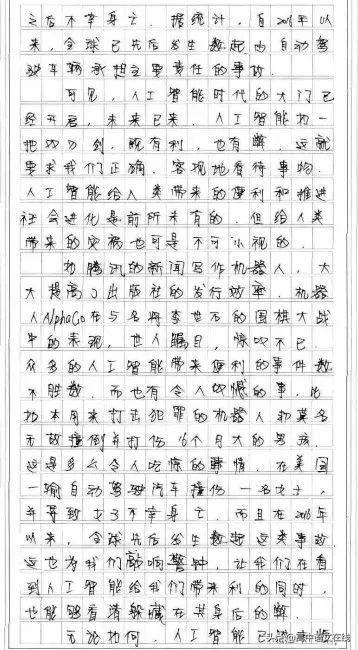 之后不幸身亡. 据统计, 自2016年以
来, 全球已先后发生数起由自动驾
驶车辆承担主要责任的事故.
可见, 人工智能时代的大门已
经开启, 未来已来. 人工智能如一
把双刃剑, 既有利, 也有弊. 这就
要求我们正确、客观地看待事物.
人工智能给人类带来的便利和推进
社会进化是前所未有的, 但给人类
带来的灾祸也可是不可小视的.
如腾讯的新闻写作机器人, 大
大提高了出版社的发行效率. 机器
人AlphaGo在与名将李世石的围棋大战
中的表现, 世人瞩目, 惊叹不已.
众多的人工智能带来便利的事件数
不胜数. 而也有令人的事, 比
如本用来打击犯罪的机器人却莫名
无故撞倒并打伤16个月大的男孩.
这是多么令人吃惊的事情. 在美国
一辆自动驾驶汽车撞伤一名女子,
并导致女子不幸身亡. 而且在2016年
以来, 全球先后发生数起这类事故
这也为我们敲响警钟, 让我们在看
到人工智能给我们带来利的同时,
也能够看清躲藏在其身后的弊.
无论如何, 人工智能已
头条@高中语文在线